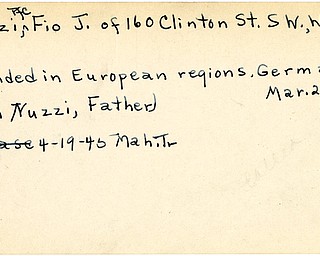 Pfc
zzi, Fio J. of 160 Clinton St. S W., W
nded in European regions. Germa
Mar. 2
Nuzzi, Father)
ase 4-19-45 Mah. Tr